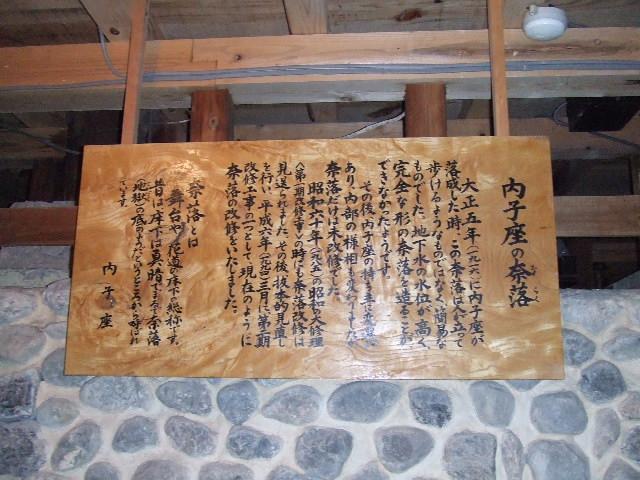 内子座の奈落
ならく
大正五年(一九一六)に内子座が
落成した時、この奈落は人が立って
歩けるようなものではなく、簡易な
ものでした。地下水の水位が高く、
完全な形の奈落を造ることが
できなかったようです。
その後、内子座の持ち主の
あり、内部の様相も変わりましたが
奈落だけは未改修でした。
昭和六十年(一九八五)の昭和の大修理
(第一期改修工事)の時にも奈落改修は
見送られました。その後、抜本的見直し
を行い、平成六年(一九九四)三月に第二期
改修工事の一つとして現在のように
奈落の改修をいたしました。
奈落とは
舞台や花道の床下の総称です。
昔は、床下は真暗でまるで奈落
(地獄)の底のようだというところから呼ばれ
ています。
内子座